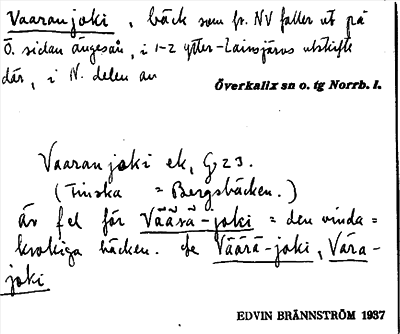 Vaaranjoki, bäck som fr. NV faller ut på
Ö. sidan ängesån, i 1-2 ytter-Lainsjärvs utskifte
där, i N. delen av
Överkalix sn o. tg Norrb. l.
Vaaranjoki ek, G 23.
(Finska = Bergsbäcken.)
är fel för Väärä-joki = den vinda=
krokiga bäcken. Se Väärä-joki, Vära-
joki
EDVIN BRÄNNSTRÖM 1937